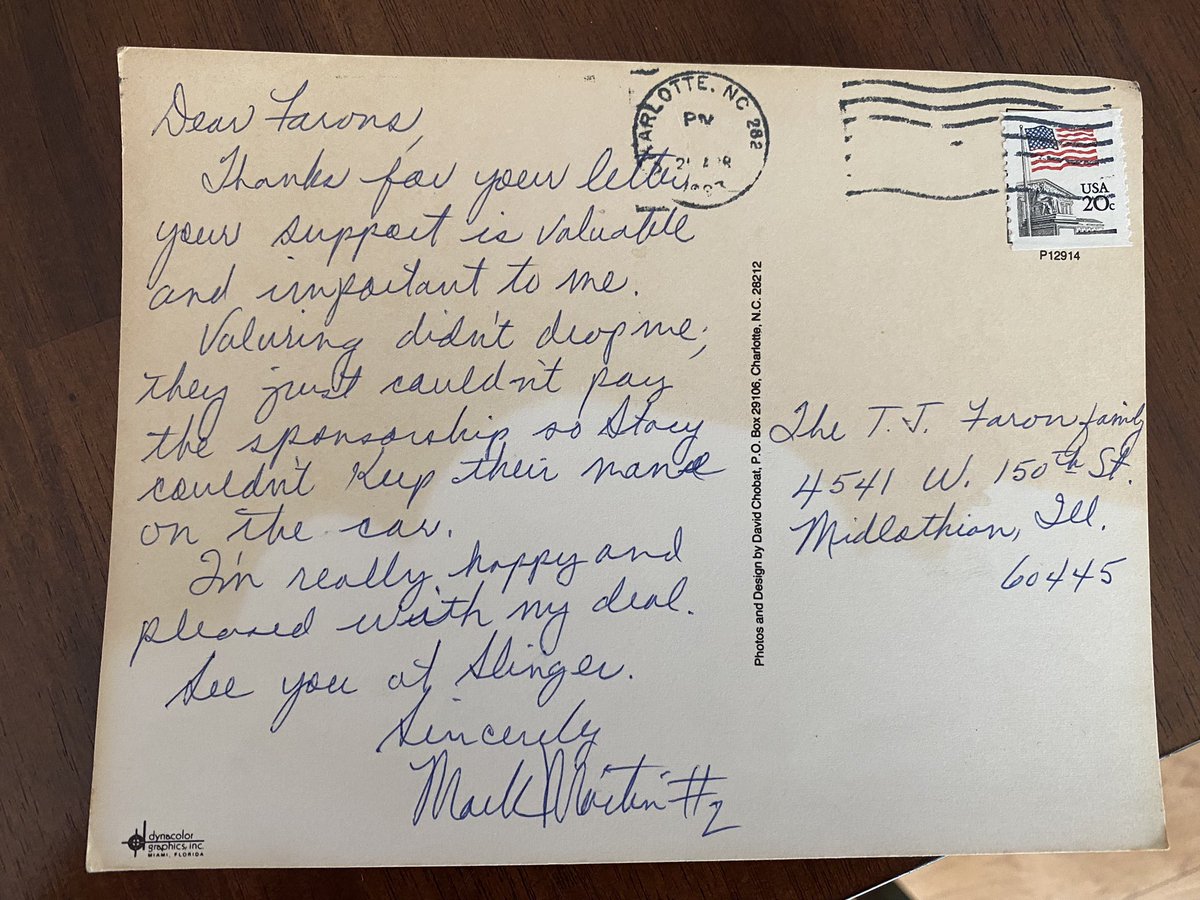 Dear Farons,
Thanks for your letter
your support is valuable
and important to me.
Valuring didn't drop me;
they just couldn't pay
the sponsorship so Stacy
couldn't Keep their name
on the car.
I'm really happy and
pleased with my deal.
See you at Slinger.
Sincerely
Mark Martin #2
dynacolor
graphics, inc.
MIAMI, FLORIDA
Photos and Design by David Chobat, P.O. Box 29106, Charlotte, N.C. 28212
HARLOTTE, NC 282
PM
APR
USA
20c
P12914
The T.J. Faron family
4541 W. 150th St.
Midlothian, Ill.
60445